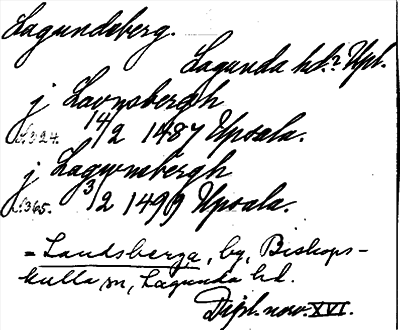 Lagundsberg.
Lagunda hd.? Upl.
j Lavnsbergh
s. 324. 14/2 1487 Upsala.
j Lagwnsbergh
s. 365. 3/2 1499 Upsala.
= Landsberga, by, Biskops-
kulla sn, Lagunda hd.
Dipl. nov. XVI.